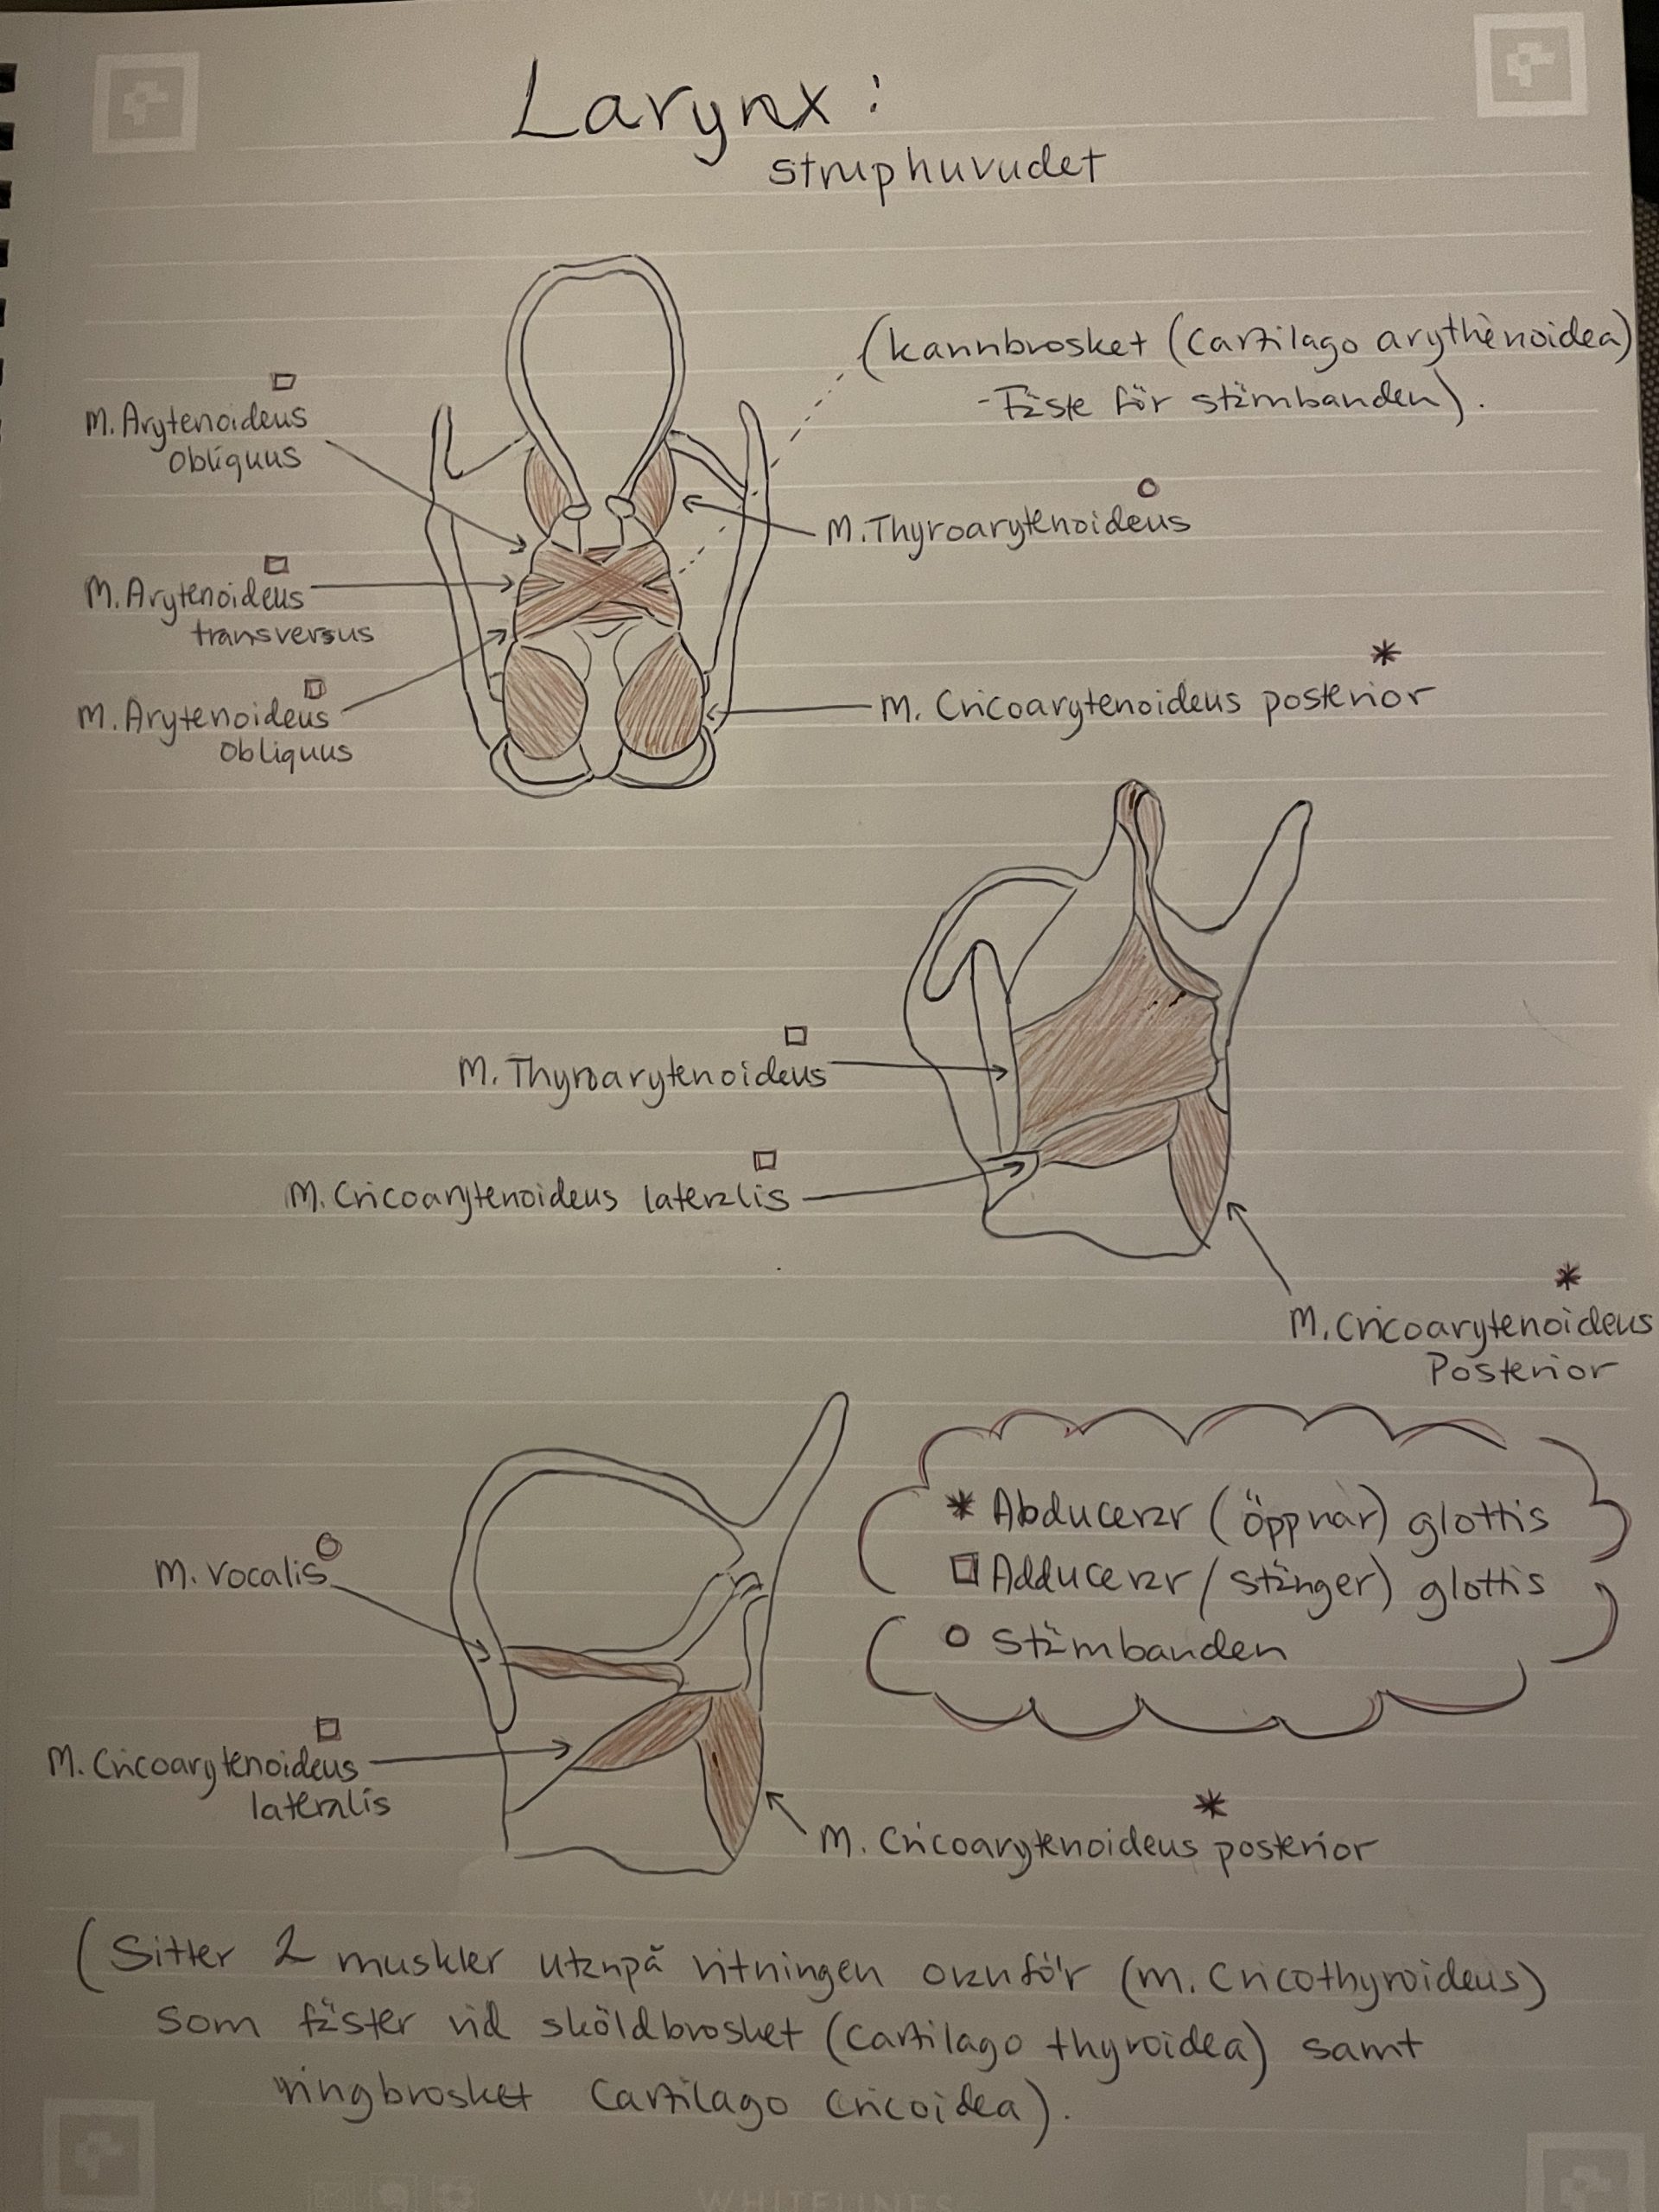 Larynx:
struphuvudet
(kannbrosket (Cartilago arythenoidea)
-Fäste för stämbanden).
M. Arytenoideus
obliquus
M. Thyroarytenoideus
M. Arytenoideus
transversus
M. Arytenoideus
obliquus
M. Cricoarytenoideus posterior
M. Thyroarytenoideus
M. Cricoarytenoideus lateralis
M. Cricoarytenoideus
Posterior
* Abducerar (öppnar) glottis
□ Adducerar (stänger) glottis
○ Stämbanden
M. vocalis
M. Cricoarytenoideus
lateralis
M. Cricoarytenoideus posterior
(Sitter 2 muskler utanpå ritningen ovanför (M. Cricothyroideus)
som fäster vid sköldbrosket (Cartilago thyroidea) samt
ringbrosket Cartilago cricoidea).
WHITELINES